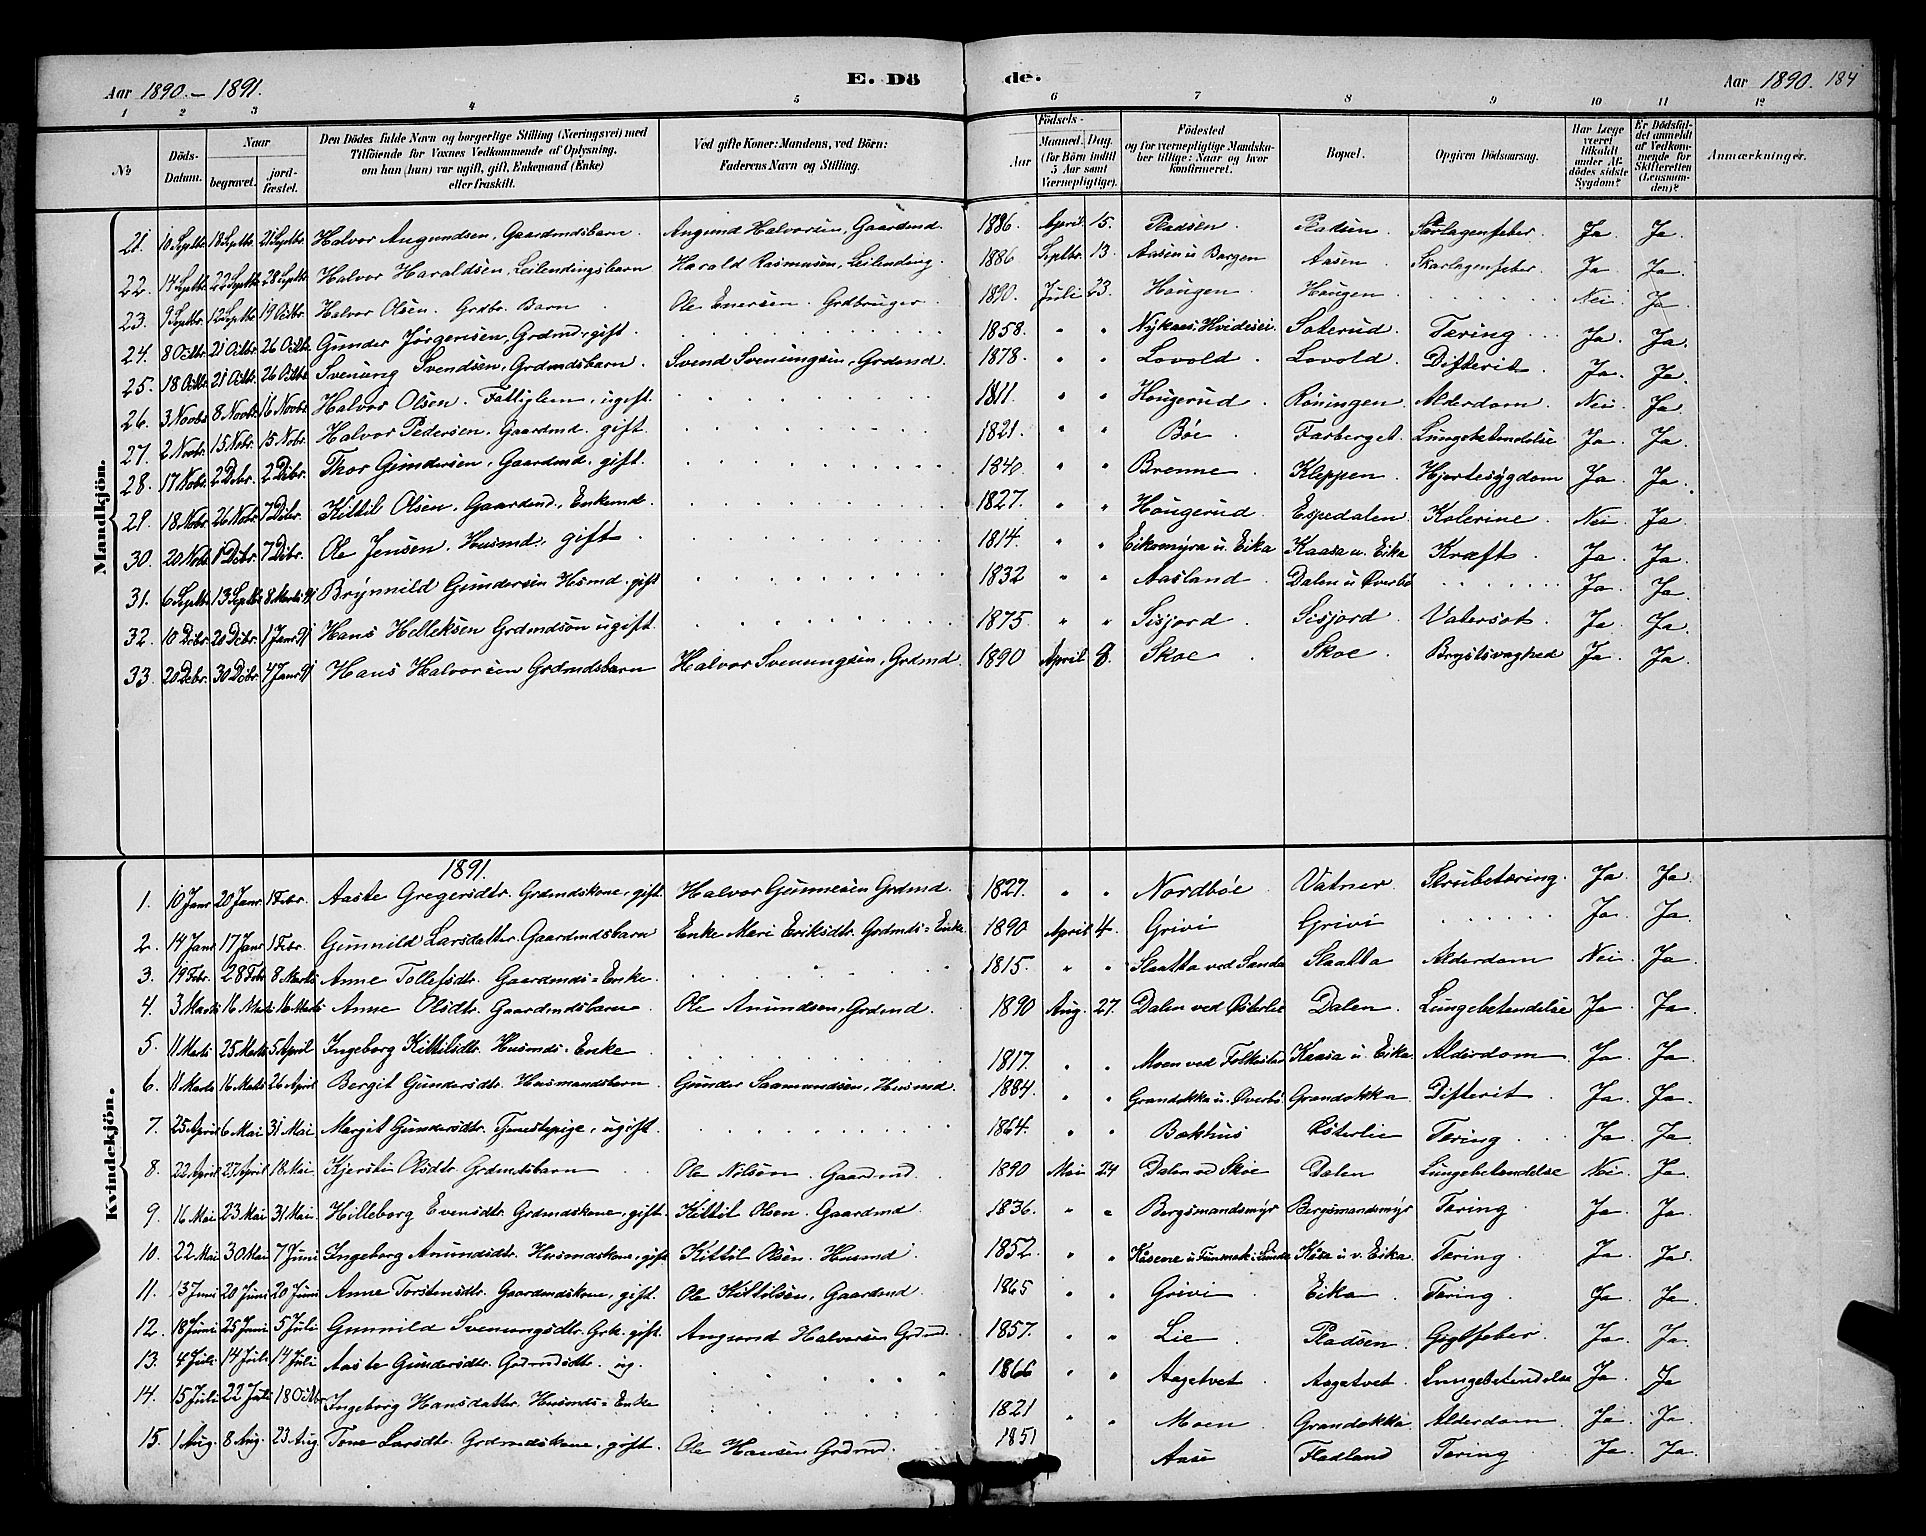 Aar 1890.-1891. E. Dö de. Aar 1890. 184
1 2 3 4 5 6 7 8 9 10 11 12
No
Döds-Datum.
Naar
begravet.
jordfæstet.
Den Dödes fulde Navn og borgerlige Stilling (Næringsvei) med
Tilföiende for Voxnes Vedkommende af Oplysning,
om han (hun) var ugift, gift, Enkemand (Enke)
eller fraskilt.
Ved gifte Koner: Mandens, ved Börn:
Faderens Navn og Stilling.
Födsels-
Aar
Maaned. Dag
(for Börn indtil
5 Aar samt
Værnepligtige).
Födested
og for værnepligtige Mandska-
ber tillige: Naar og hvor
konfirmeret.
Bopæl.
Opgiven Dödsaarsag.
Har Læge
været
tilkaldt
under Af-
dödes sidste
Sygdom?
Er Dödsfal-
det anmeldt
af Vedkom-
mende for
Skifteretten
(Lensman-
den)?
Anmærkninger.
Mandkjön.
21. 10 Septbr 18 Septbr 21 Septbr. Halvor Augundsen, Gaardmdsbarn. Augund Halvorsen, Gaardmd. 1886. April. 15. Pladsen. Pladsen Skarlagensfeber. Ja. Ja.
22. 14 Septbr 22 Septbr 28 Septbr Halvor Haraldsen, Leilendingsbarn Harald Rasmussen, Leilending. 1886 Septbr. 13. Aasen u Borgen Aasen Skarlagensfeber. Ja. Ja.
23. 9 Septbr 12 Septbr 19 Octbr. Halvor Olsen. Grdbr. Barn Ole Enersen. Grdbruger. 1890. Juli 23. Haugen. Haugen. Nei. Ja.
24. 8 Octbr. 21 Octbr. 26 Octbr. Gunder Jörgensen, Grdmd, gift. 1858. " " Nykaas, Hvidesei. Soterud. Tæring. Ja. Ja.
25. 18 Octbr. 21 Octbr. 26 Octbr. Svenung Svendsen, Grdmdsbarn. Svend Svenungsen, Grdmd. 1878. " " Lovold. Lovold. Difterit. Ja. Ja.
26. 3 Novbr. 8 Novbr. 16 Novbr. Halvor Olsen. Fattiglem, ugift. 1811. " " Haugerud. Röningen. Alderdom. Nei. Ja.
27. 2 Novbr. 15 Nobr. 15 Nobr. Halvor Pedersen, Gaardmd. gift. 1821. " " Böe. Farberget. Lungebetendelse Ja. Ja.
28. 17 Nobr. 2 Debr. 2 Dcbr. Thor Gundersen, Gaardmd. gift. 1840. " " Brenne. Kleppen. Hjertesygdom Ja. Ja.
29. 18 Nobr. 26 Nobr 7 Dcbr. Kittil Olsen, Gaardmd., Enkemd. 1827. " " Haugerud. Espedalen. Kolerine. Nei. Ja.
30. 20 Nobr. 1 Dcbr. 7 Dcbr. Ole Jensen, Husmd., gift. 1814. " " Eikamyra u. Eika Kaasa u. Eika Kræft. Ja. Ja.
31. 6 Septbr. 13 Septbr 8 Marts 91 Brynnild Gundersen Hsmd. gift 1832 " " Aasland. Dalen u Overbö Ja. Ja.
32. 10 Dcbr. 20 Dcbr. 1 Janr 91 Hans Helleksen Grdmdsön ugift. 1875. " " Sisjord. Sisjord. Vatersot. Ja. Ja.
33. 20 Debr. 30 Dcbr. 4 Janr 91 Hans Halvorsen Grdmdsbarn Halvor Svenungsen, Grdmd. 1890 April 8. Skoe. Skoe. Brystsvaghed Ja. Ja.
Kvindekjön.
1891.
1. 10 Janr 20 Janr. 1 Febr. Aaste Gregersdtr. Grdmdskone, gift. Halvor Gunnesen Grdmd. 1827. " " Nordböe. Vatner. Strubetæring. Ja. Ja.
2. 14 Janr 17 Janr 1 Febr. Gunnild Larsdatter. Gaardmdsbarn Enke Mari Eriksdtr. Grdmds-Enke. 1890 April 4. Grivi Grivi Ja. Ja.
3. 19 Febr. 28 Febr 8 Marts Anne Tollefsdtr. Gaardmds-Enke. 1815. " " Slaatta ved Sanda Slaatta Alderdom Nei. Ja.
4. 3 Marts 16 Marts 16 Marts Anne Olsdtr. Gaardmdsbarn Ole Anundsen, Grdmd. 1890 Aug. 27. Dalen ved Österlie Dalen. Lungebetendelse Ja. Ja.
5. 11 Marts 25 Marts 5 April Ingeborg Kittilsdtr. Husmds-Enke 1817. " " Moen ved Folkestad Kaasa u. Eika. Alderdom Ja. Ja.
6. 11 Marts 16 Marts 26 April Bergit Gundersdtr. Husmandsbarn. Gunder Saamundsen, Husmd. 1884. " " Grandokka u. Overbö Grandokka Difterit. Ja. Ja.
7. 25 April 6 Mai 31 Mai Margit Gundersdtr. Tjenestepige, ugift. 1864. " " Bækhus Österlie Tæring. Ja. Ja.
8. 22 April 27 April 18 Mai Kjersten Olsdtr. Grdmdsbarn Ole Nilsen. Gaardmd. 1890 Mai 24 Dalen vd Skoe Dalen Lungebetendelse Nei. Ja.
9. 16 Mai 23 Mai 31 Mai. Hilleborg Evensdtr. Grdmdskone, gift. Kittil Olsen. Gaardmd 1836. " " Bergsmandsmyr Bergsmandsmyr Tæring. Ja. Ja.
10. 22 Mai 30 Mai 7 Juni Ingeborg Anundsdtr. Husmdskone, gift Kittil Olsen. Husmd. 1852. " " Kaasa u v. Eika. Tæring. Ja. Ja.
11. 13 Juni 20 Juni 20 Juni Anne Torstensdtr. Gaardmdskone, gift. Ole Kittilsen, Gaardmd. 1865 " " Grivi. Eika. Tæring. Ja. Ja.
12. 18 Juni 25 Juni 5 Juli Gunnild Svenungsdtr. Grk. gift. Augund Halvorsen Grdmd. 1857. " " Lie. Pladsen. Gigtfeber. Ja. Ja.
13. 4 Juli 14 Juli 14 Juli Aaste Gundersdtr. Grdmdsdtr. ug. 1866 " " Aagetvet. Aagetvet. Lungebetendelse Ja. Ja
14. 15 Juli 22 Juli 18 Octbr Ingeborg Hansdatter. Husmds-Enke 1821 " " Moen. Grandokka. Alderdom. Ja. Ja.
15. 1 Aug. 8 Aug. 23 Aug. Tone Larsdtr. Grdmdskone, gift. Ole Hansen Grdmd. 1851 Aase Fladland Tæring. Ja. Ja.